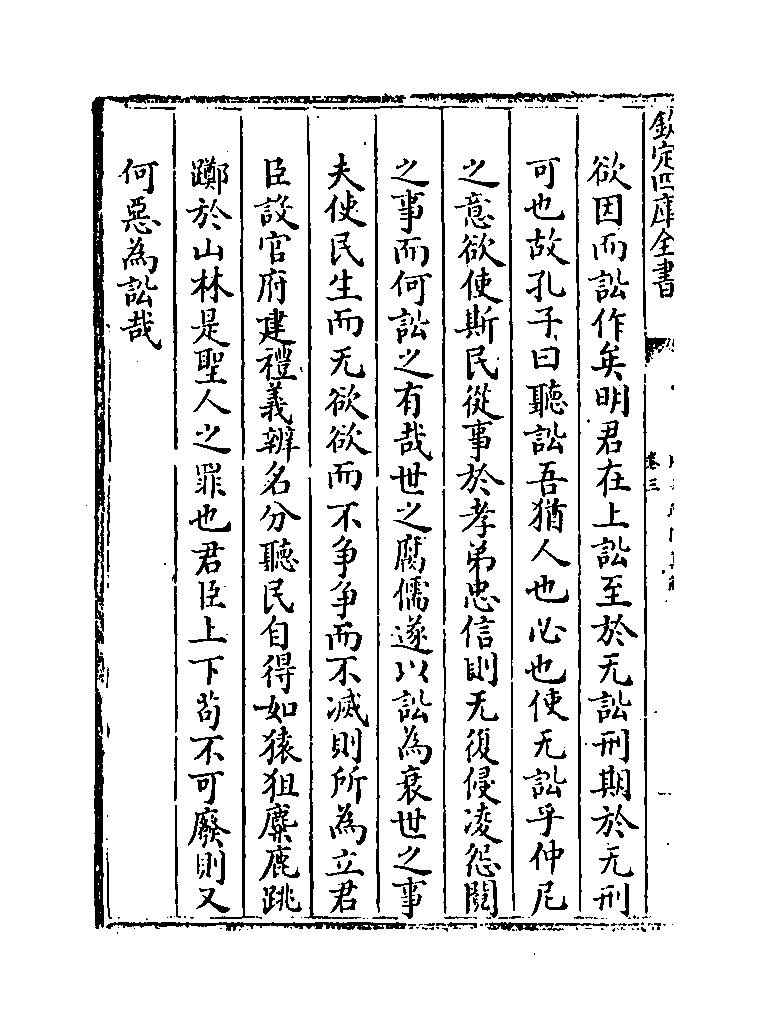 欽定四庫全書
卷三
欲因而訟作矣明君在上訟至於无訟刑期於无刑
可也故孔子曰聽訟吾猶人也必也使无訟乎仲尼
之意欲使斯民從事於孝弟忠信則无復侵凌怨鬩
之事而何訟之有哉世之腐儒遂以訟為衰世之事
夫使民生而无欲欲而不争争而不滅則所為立君
臣設官府建禮義辨名分聽民自得如猿狙麋鹿跳
躑於山林是聖人之罪也君臣上下茍不可廢則又
何惡為訟哉